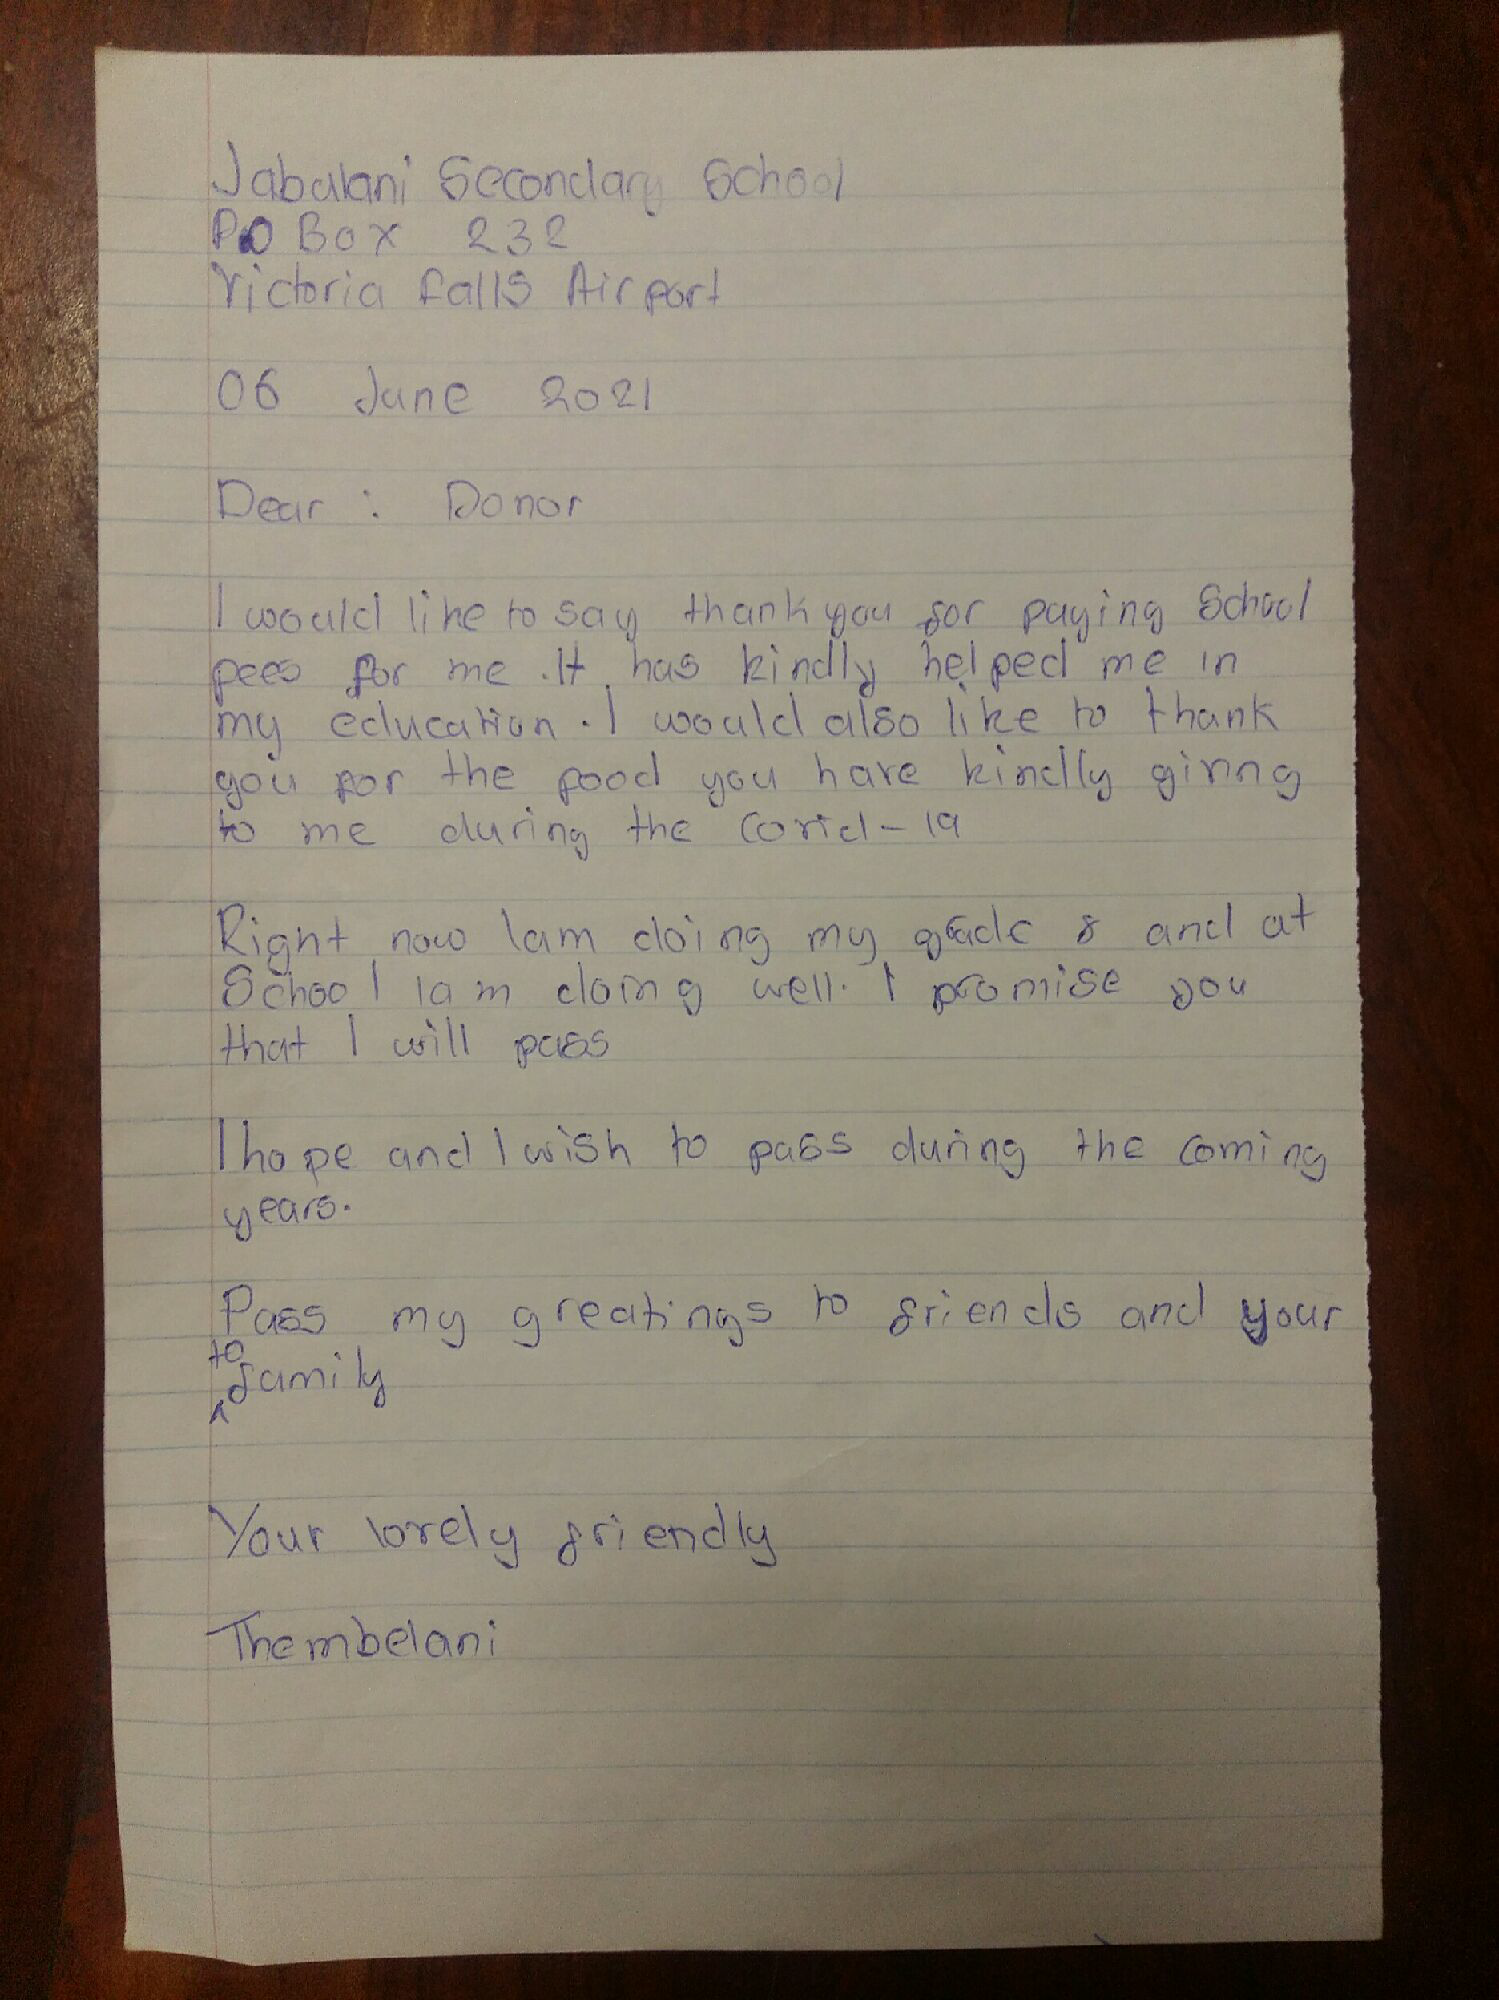 Jabulani Secondary School
PO Box 232
Victoria falls Airport
06 June 2021
Dear : Donor
I would like to say thank you for paying School
fees for me . It has kindly helped me in
my education . I would also like to thank
you for the food you have kindly giving
to me during the Covid - 19
Right now I am doing my grade 8 and at
School I am doing well. I promise you
that I will pass
I hope and I wish to pass during the coming
years.
Pass my greatings to friends and your
to family
Your lovely friendly
Thembelani